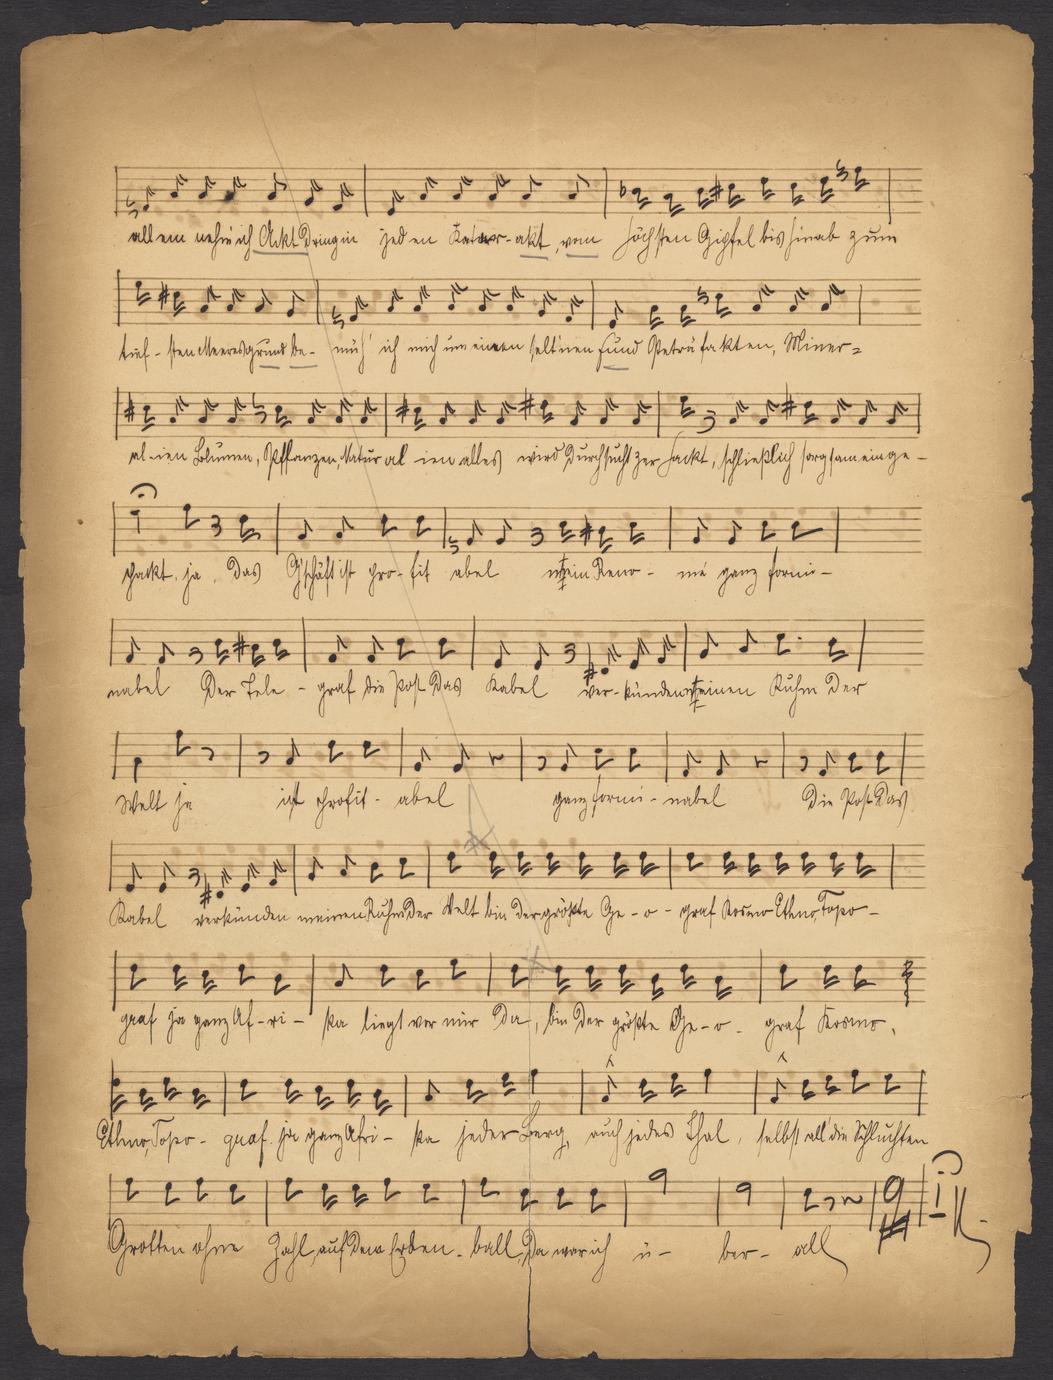 allem nehm' ich Ackt Dring in jeden Katar-akt, vom höchsten Gipfel bis hinab zum
tief-sten Meeresgrund be- müh' ich mich um einen selt'nen Fund Petrefakten, Miner-
al-ien Blumen, Pfflanzen, Natural ien alles wird Durchsucht zer hackt, schließlich sorgsam einge-
packt, ja, Das G'schäft ist pro-fit abel mein Reno- mé ganz formi-
nabel Der Tele-graf die Post Das Kabel ver-künden meinen Ruhm Der
Welt ja ist profit-abel ganz formi-nabel Die Post Das
Kabel verkünden meinen Ruhm Der Welt bin der größte Ge-o-graf Kosmo Ethno, Topo-
graf ja ganz Af-ri-ka liegt vor mir Da, bin Der größte Ge-o-graf Kosmo,
Ethno, Topo-graf ja ganz Afri-ka jeder Berg, auch jedes Thal, selbst all' die Schluchten
Grotten ohne Zahl, auf Dem Erden-ball, Da war ich ü-ber-all